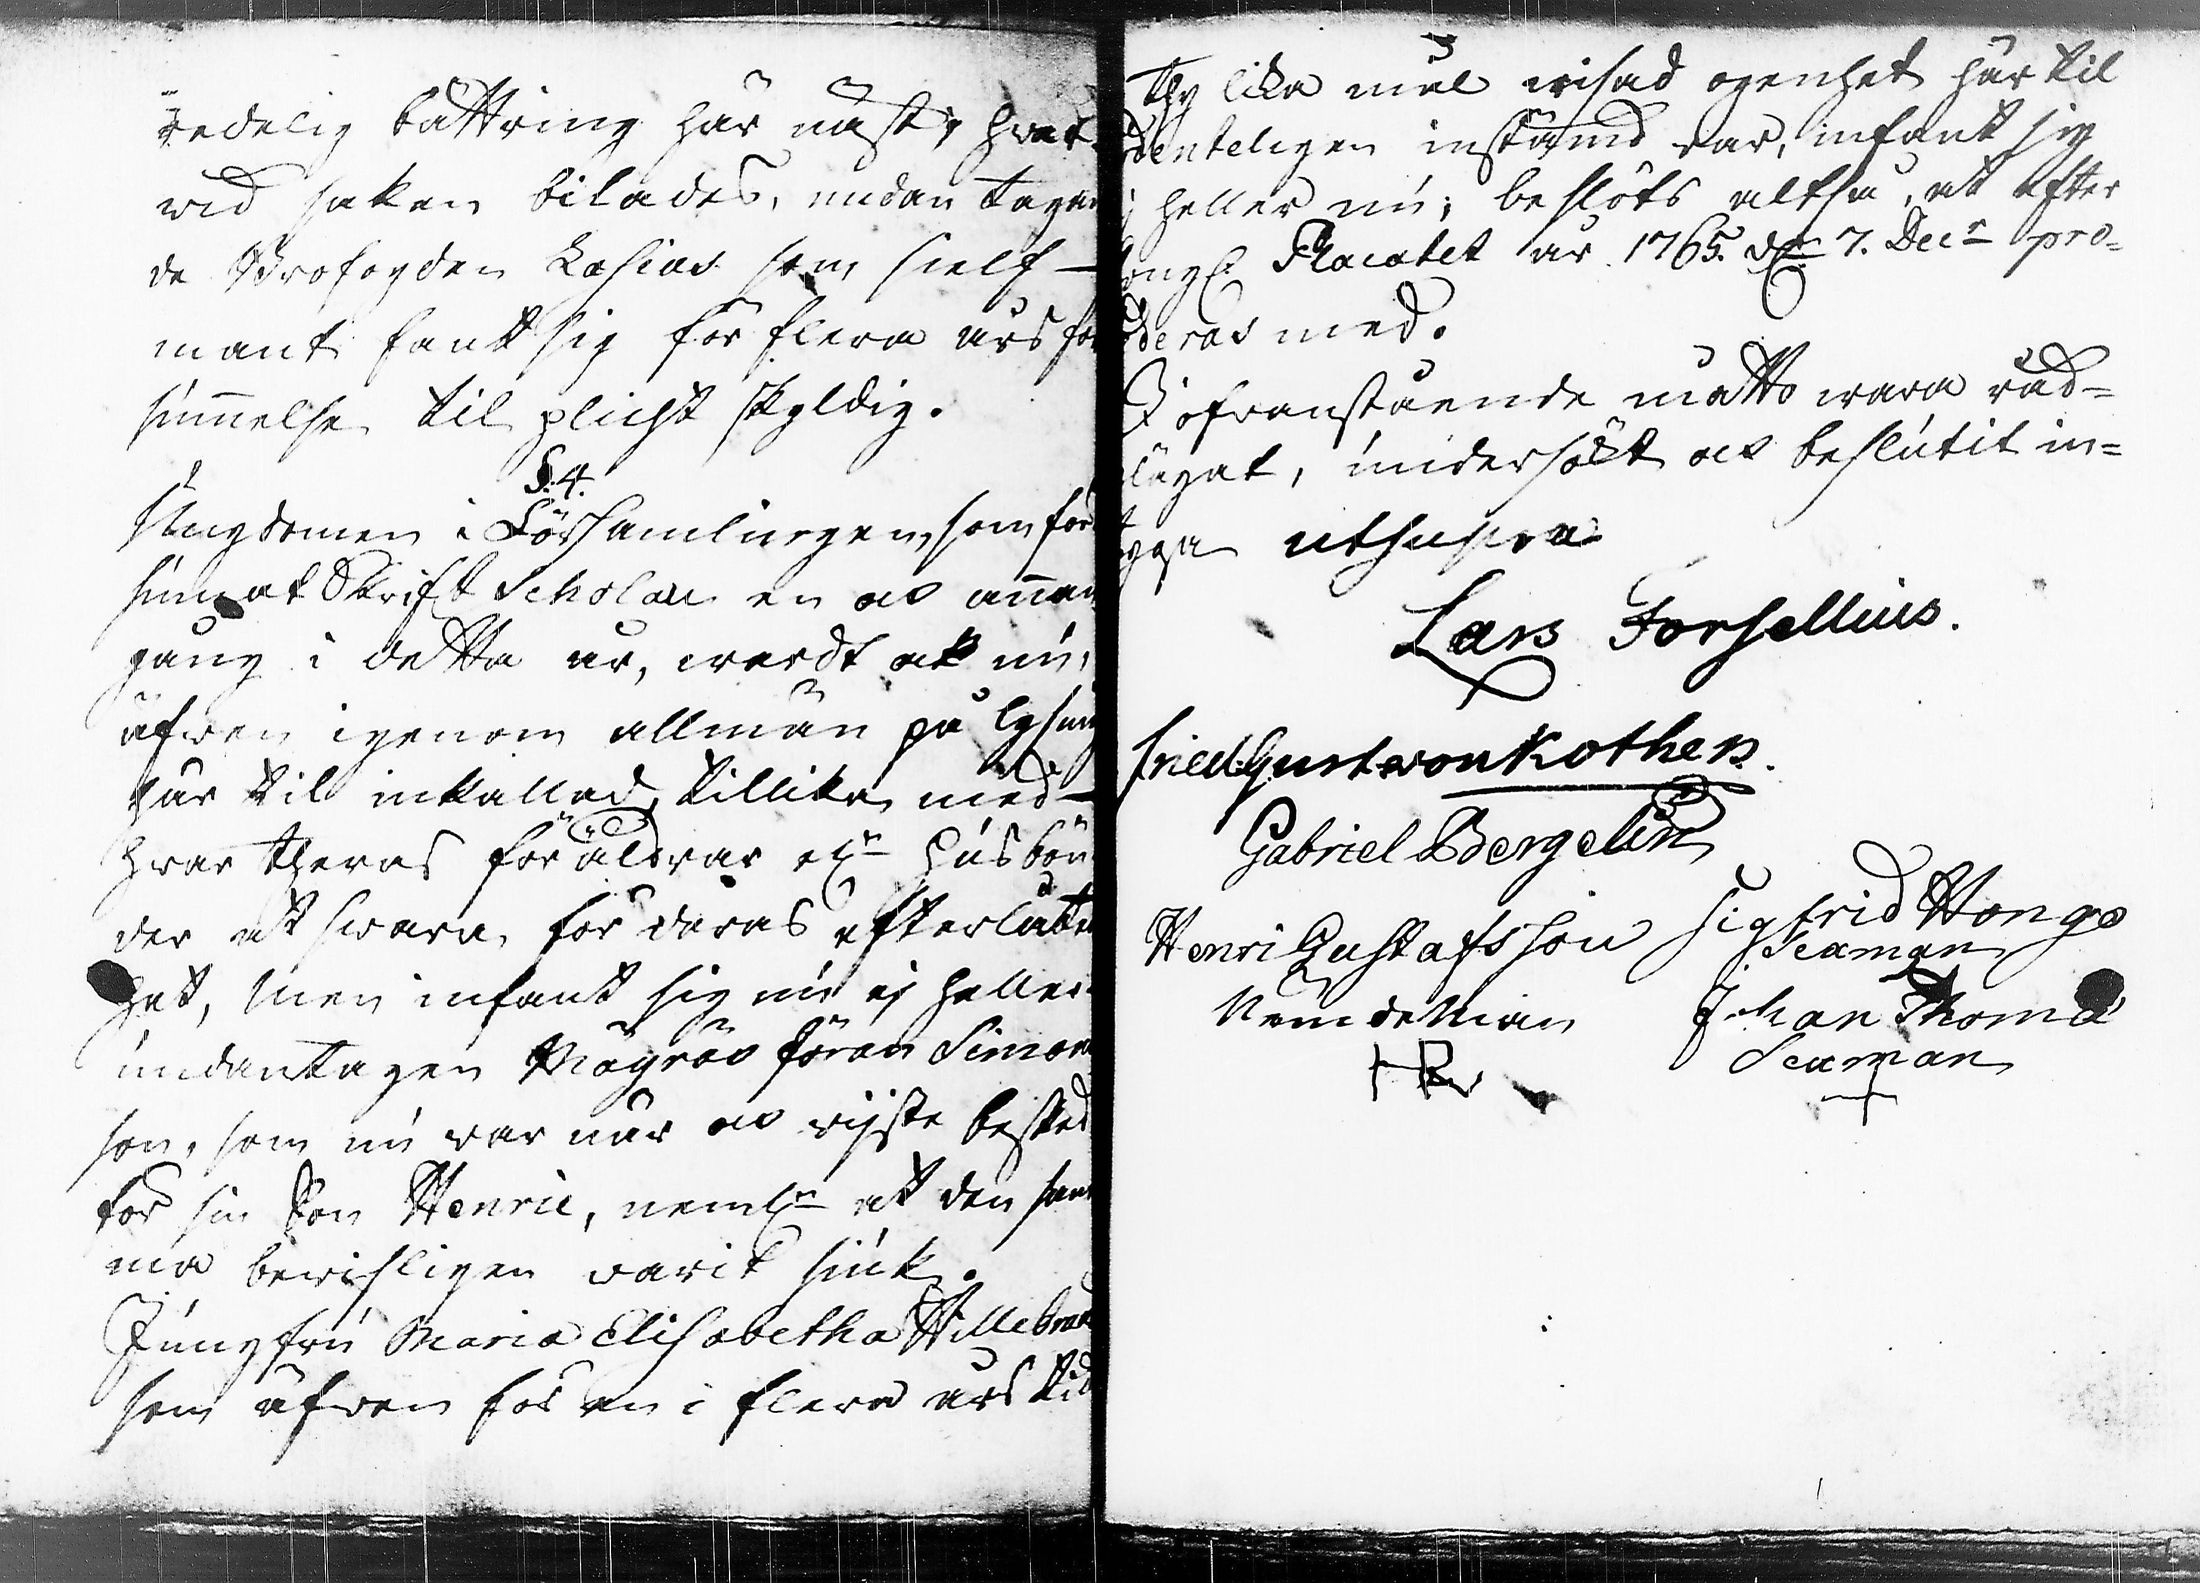 redelig bättring här näst, hwar
wid saken bilades, undan tagan
de Brofogden Casias som sielf
mant fant sig för flera års för
summelse til plicht skyldig.
§. 4.
Ungdomen i Församlingen, som för
summat Skrift Scholan en oc annan
gång i detta år, wardt ok nu,
äfwen igenom allmän på lysning
här til inkallad, tillika med
hwar theras föräldrar elr husbön
der at swara för deras efterlåten
het, men infant sig nu ej heller
undantagen Mågräs Jöran Simons
son, som nu war när oc wiste besked
för sin Son Henric, neml at den sam
ma bewisligen warit siuk.
Jungfru Maria Elisabetha Willebrand
som äfwen för en i flera års tid
thy lika mål wisad ogenhet här til
denteligen instämd war, infant sig
ej heller nu; beslöts altså, at efter
Kongl. Placatet år 1765. dn 7. Decr pro=
deras med.
I ofwanstående måtto wara råd=
lagat, undersökt oc beslutit in=
tyga utsupra
Lars Forsellius.
fried: Gust von Kothen.
Gabriel Bergelin
Henri Gustafsson Sigfrid Honga
Sexman
Nemdeman Johan Thoma
Sexman
HR